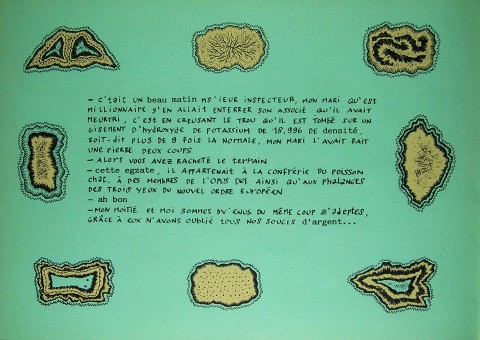 — C'tait UN beau matin MS'IEUR INSPECTEUR, MON MARI QU'EST
MILLIONNAIRE S'EN ALLAIT ENTERRER SON ASSOCIÉ QU'IL AVAIT
MEURTRI, C'EST EN CREUSANT LE TROU QU'IL EST TOMBÉ SUR UN
GISEMENT D'hydroxyde de POTASSIUM DE 18,996 de densité,
soit-dit PLUS DE 9 FOIS LA NORMALE, MON MARI L'AVAIT FAIT
UNE PIERRE DEUX COUPS
— ALORS VOUS AVEZ RACHETÉ LE TERRAIN
— cette egzate, IL APPARTENAIT À LA CONFRÉRIE DU POISSON
chat, À DES MEMBRES DE L'OPUS DEI AINSI QU'AUX PHALANGES
DES TROIS YEUX DU NOUVEL ORDRE EUROPÉEN
— ah bon
— MON MOITIÉ ET MOI SOMMES DV'ENUS DU MÊME COUP d'adeptes,
GRÂCE À EUX N'AVONS OUBLIÉ TOUS NOS SOUCIS d'argent...